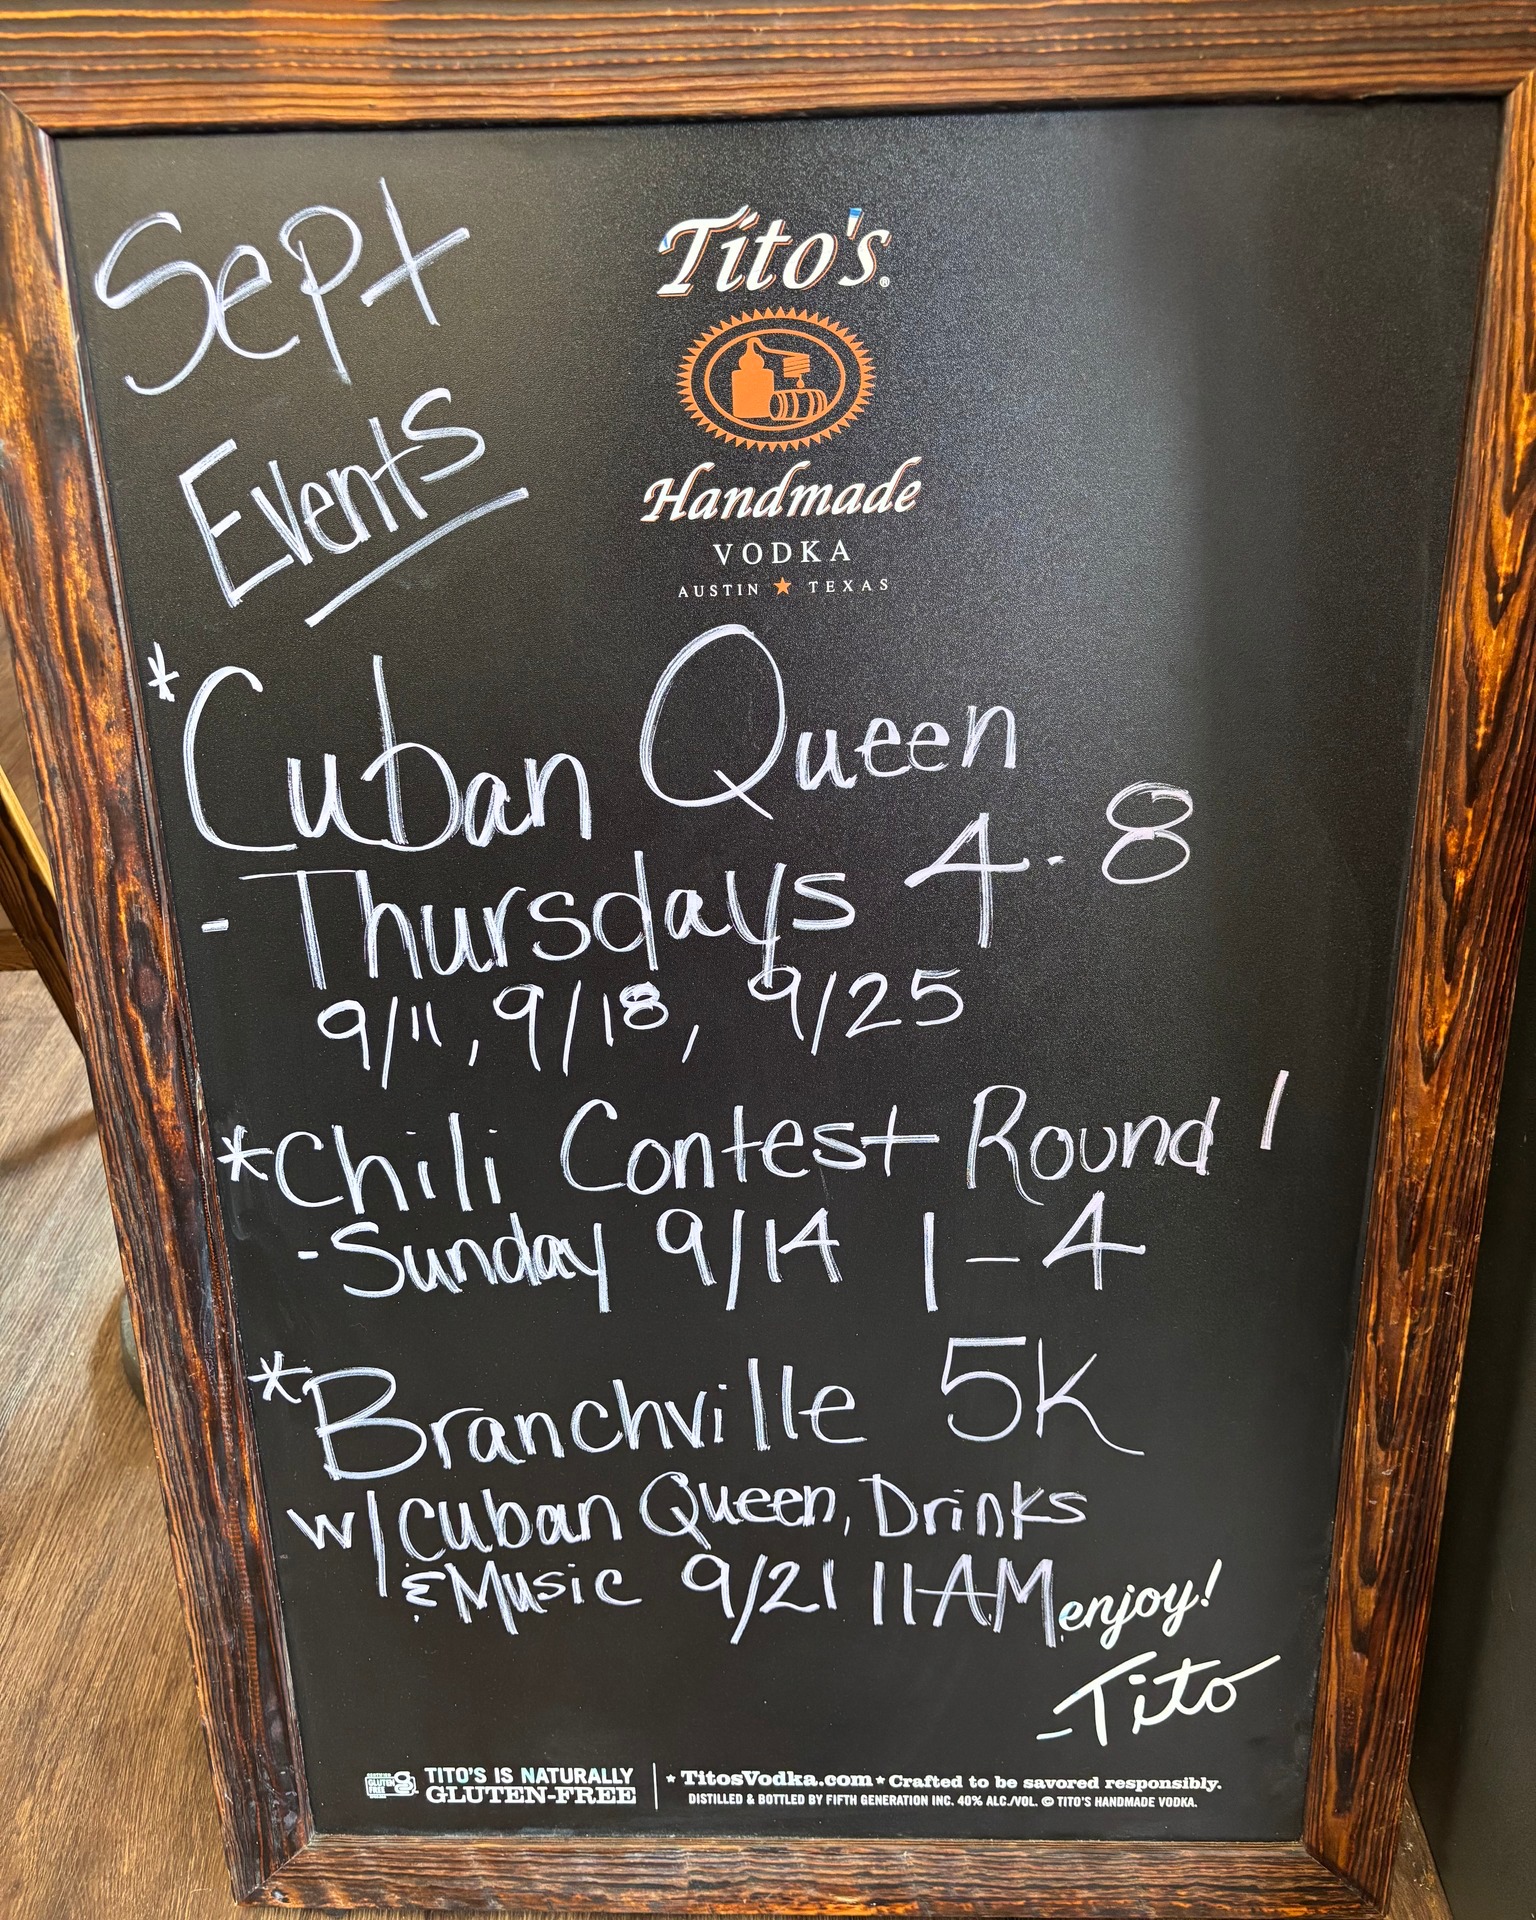 Sept
Events
Tito's®
Handmade
VODKA
AUSTIN ★ TEXAS
*Cuban Queen
- Thursdays 4-8
9/11, 9/18, 9/25
*Chili Contest Round 1
- Sunday 9/14 1-4
*Branchville 5K
w/ Cuban Queen, Drinks
& Music 9/21 11AM
enjoy!
-Tito
CERTIFIED
GLUTEN
FREE
TITO'S IS NATURALLY
GLUTEN-FREE
★ TitosVodka.com ★ Crafted to be savored responsibly.
DISTILLED & BOTTLED BY FIFTH GENERATION INC. 40% ALC./VOL. © TITO'S HANDMADE VODKA.